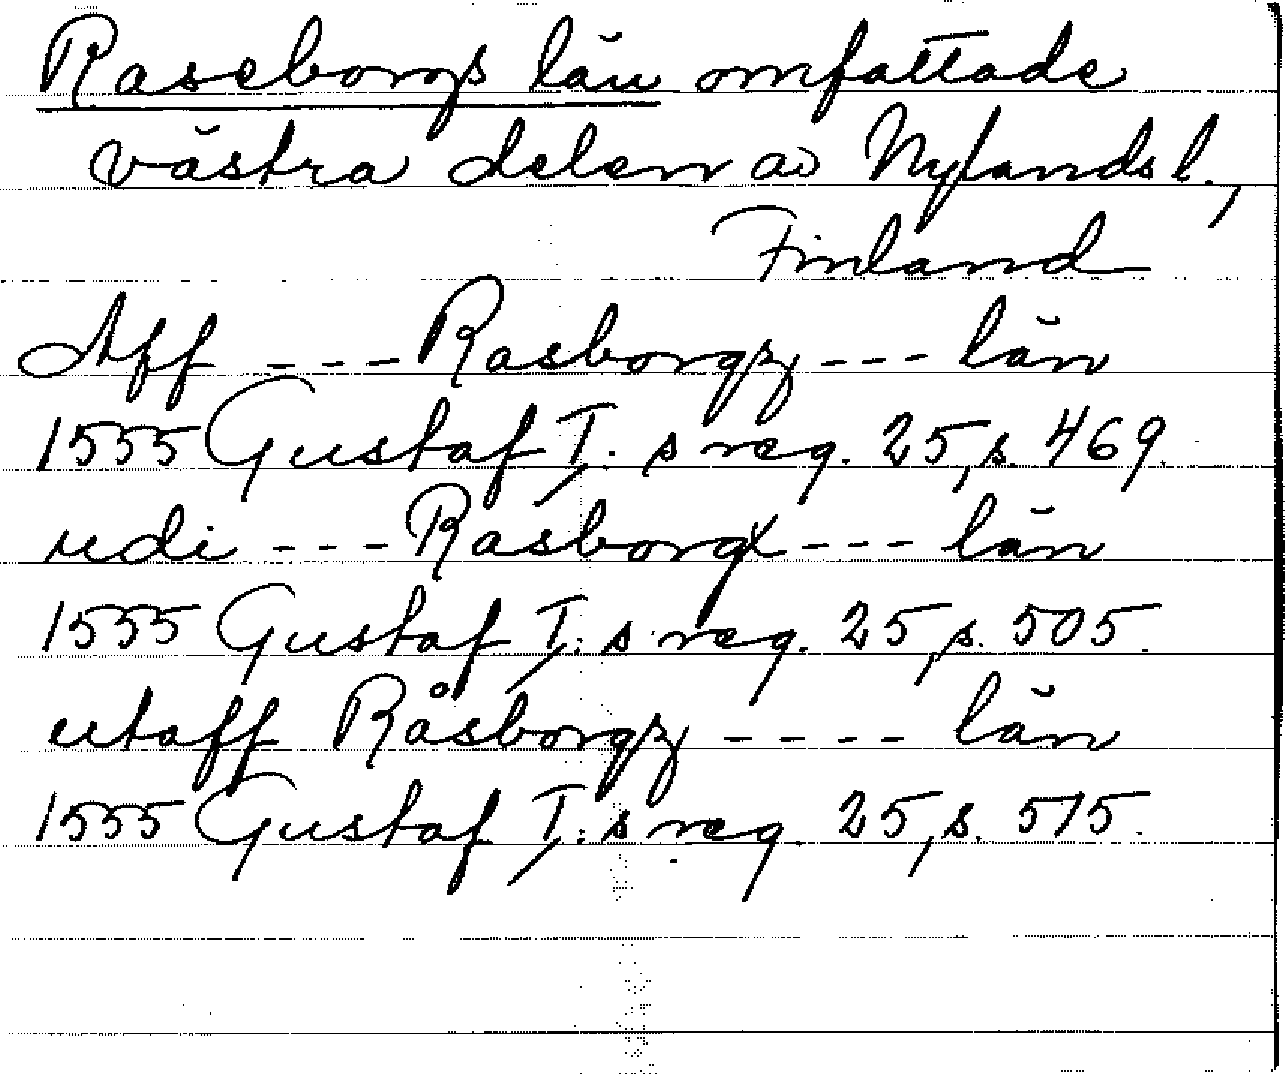 Raseborgs län omfattade
västra delen av Nylands l.,
Finland
Aff --- Rasborgz --- län
1555 Gustaf I:s reg. 25, s. 469.
udi --- Rasborgx --- län
1555 Gustaf I:s reg. 25, s. 505.
utaff Råsborgz ---- län
1555 Gustaf I:s reg. 25, s. 515.